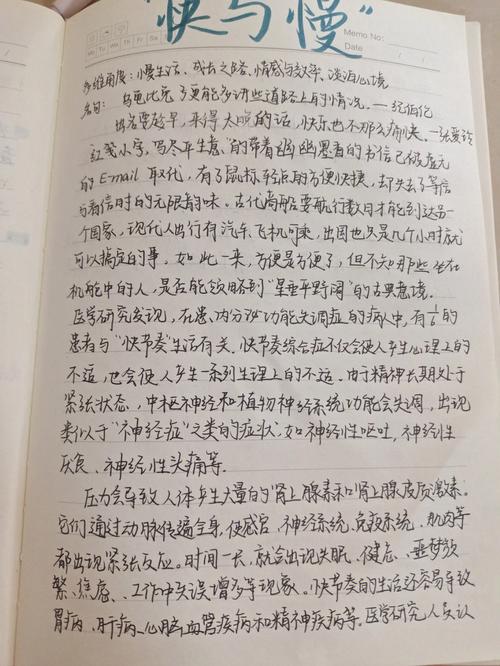 "快与慢"
Memo No:
Mo Tu We Th Fr Sa Su
Date
多维角度：慢生活、成长之路、情感与效率、淡泊心境
名句：乌龟比兔子更能多讲些道路上的情况。——纪伯伦
出名要趁早，来得太晚的话，快乐也不那么痛快。—张爱玲
红笺小字，写尽平生意，的带着幽幽墨香的书信已被虚无
的E-mail取代，有了鼠标轻点的方便快捷，却失去了等信
与看信时的无限韵味。古代商船要航行数月才能到达另一
个国家，现代人出行有汽车、飞机可乘，出国也只是几个小时就
可以搞定的事。如此一来，方便是方便了，但不知那些坐在
机舱中的人，是否能领略到"星垂平野阔"的古典意境。
医学研究发现，在患、内分泌功能失调症的病人中，有的
患者与"快节奏"生活有关。快节奏综合症不仅会使人产生心理上的
不适，也会使人产生一系列生理上的不适。由于精神长期处于
紧张状态，中枢神经和植物神经系统功能会失调，出现
类似于"神经症"之类的症状：如神经性呕吐，神经性
厌食、神经性头痛等。
压力会导致人体产生大量的肾上腺素和肾上腺皮质激素。
它们通过动脉传遍全身，使感官、神经系统、免疫系统、肌肉等
都出现紧张反应。时间一长，就会出现失眠、健忘、噩梦频
繁、焦虑、工作中失误增多等现象。快节奏的生活还容易导致
胃病、肝病、心脏血管疾病和精神疾病等。医学研究人员认